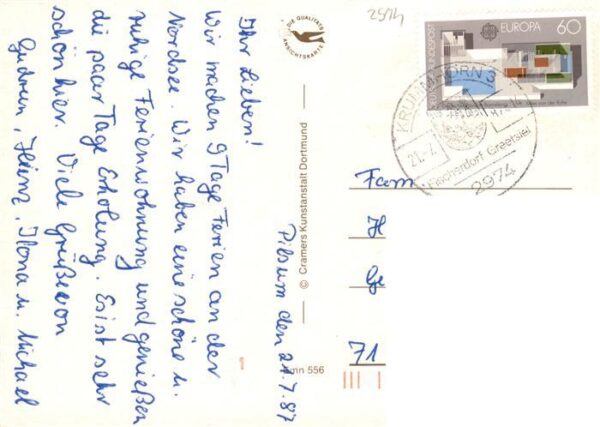 Pilsum den 21.7.87
Ihr Lieben!
Wir machen 9 Tage Ferien an der
Nordsee. Wir haben eine schöne u.
ruhige Ferienwohnung und genießen
die paar Tage Erholung. Es ist sehr
schön hier. Viele Grüße von
Gudrun, Heinz, Ilona u. Michael
DIE QUALITÄTS
ANSICHTSKARTE
© Cramers Kunstanstalt Dortmund
mn 556
2974
DEUTSCHE BUNDESPOST
EUROPA 60
KRUMMHÖRN 3
21.-7.
Fischerdorf Greetsiel
2974
Fam.
H
Ge
71